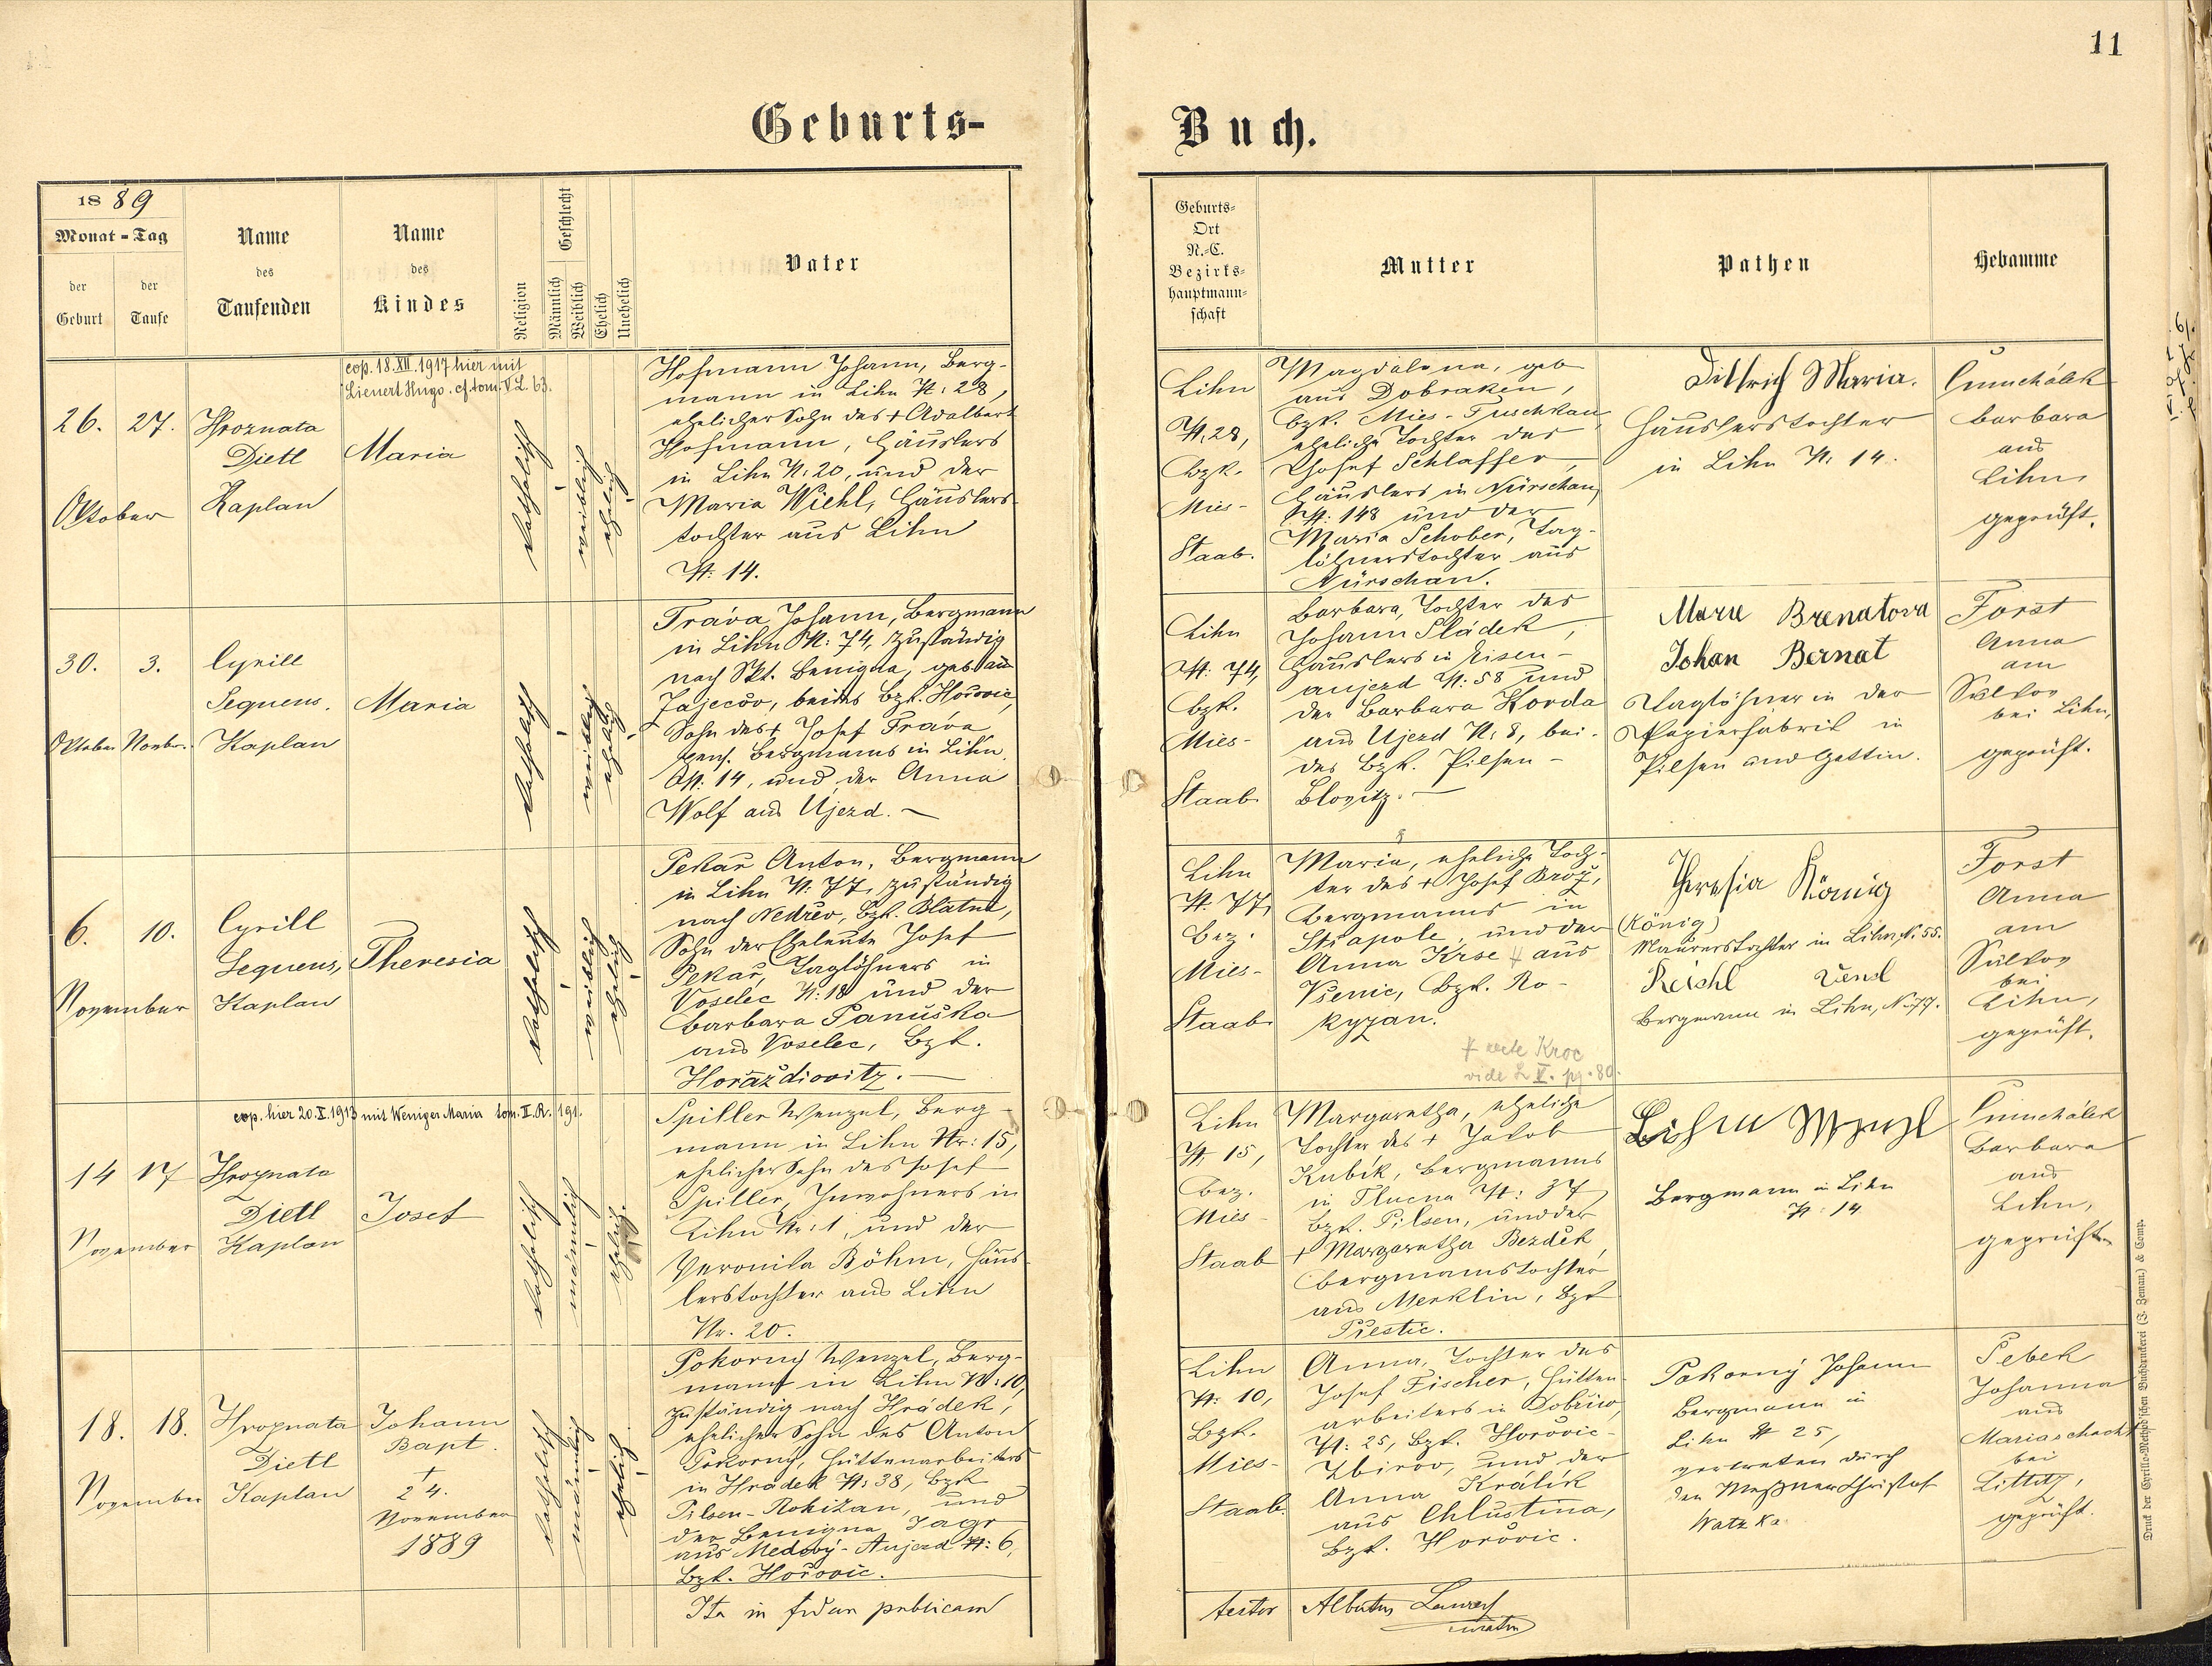 11
Geburts-
Buch.
1889
Monat = Tag
der
Geburt
der
Taufe
Name
des
Taufenden
Name
des
Kindes
Religion
Geschlecht
Männlich
Weiblich
Ehelich
Unehelich
Vater
Geburts=
Ort
N.=C.
Bezirks=
hauptmann=
schaft
Mutter
Pathen
Hebamme
26. 27.
Oktober
Hroznata
Dietl
Kaplan
cop. 18.XII.1917 hier mit
Lienert Hugo. cf. tom. V L. 63.
Maria
katholisch
weiblich
ehelich
Hofmann Johann, Berg-
mann in Lihn N: 28,
ehelicher Sohn des + Adalbert
Hofmann, Häuslers
in Lihn N: 20, und der
Maria Wiehl, Häuslers-
tochter aus Lihn
N: 14.
Lihn
N. 28,
Bzk.
Mies-
Staab.
Magdalena, geb
aus Dobraken,
Bzk. Mies-Tuschkau,
eheliche Tochter des
Josef Schlaffer,
Häuslers in Nürschan,
N: 148 und der
Maria Schober, Tag-
löhnerstochter aus
Nürschan.
Dittrich Maria.
Häuslerstochter
in Lihn N: 14.
Barbara
aus
Lihn,
geprüft.
30. 3.
Oktober Novbr.
Cyrill
Sequens,
Kaplan
Maria
katholisch
weiblich
ehelich
Tráva Johann, Bergmann
in Lihn N: 74, zuständig
nach Skt. Benigna, geb. aus
Jajecov, beides Bzk. Hořovic,
Sohn des + Josef Tráva
pens. Bergmanns in Lihn
N: 14, und der Anna
Wolf aus Ujezd. —
Lihn
N: 74,
Bzk.
Mies-
Staab
Barbara, Tochter des
Johann Sládek,
Häuslers in Eisen-
aujezd N: 58 und
der Barbara Korda
aus Ujezd N: 8, bei-
des Bzk. Pilsen-
Blovitz. —
Marie Brenatova
Johan Bernat
Taglöhner in der
Papierfabrik in
Pilsen und Gattin.
Forst
Anna
am
Sulkov
bei Lihn,
geprüft.
6. 10.
November
Cyrill
Sequens,
Kaplan
Theresia
katholisch
weiblich
ehelich
Pekař Anton, Bergmann
in Lihn N: 77, zuständig
nach Nedřev, Bzk. Blatna,
Sohn der Eheleute Josef
Pekař, Taglöhners in
Voselec N: 18 und der
Barbara Panuška
aus Voselec, Bzk.
Horažďiovitz. —
Lihn
N. 77,
Bez.
Mies-
Staab
Maria, eheliche Toch-
ter des + Josef Brož,
Bergmanns in
Stiapole, und der
Anna Krse + aus
Vsenic, Bzk. Ro-
kyzan.
+ recte Kroc
vide L V. pg. 80.
Theresia König
(König)
Maurerstochter in Lihn, N. 55.
Reichl Vensl
Bergmann in Lihn, N. 77.
Forst
Anna
am
Sulkov
bei
Lihn,
geprüft.
cop. hier 20.X.1913 mit Weniger Maria tom. II. R. 191.
14 17
November
Hroznata
Dietl
Kaplan
Josef
katholisch
männlich
ehelich.
Spiller Wenzel, Berg-
mann in Lihn Nr: 15,
ehelicher Sohn des Josef
Spiller, Inwohners in
Lihn Nr: 1, und der
Veronika Böhm, Häus-
lerstochter aus Lihn
Nr. 20.
Lihn
N. 15,
Bez.
Mies-
Staab
Margaretha, eheliche
Tochter des + Jakob
Kubík, Bergmanns
in Tlucna N: 37
Bzk. Pilsen, und der
+ Margaretha Bezdek,
Bergmannstochter
aus Merklin, Bzk
Přestic.
Böhm Wenzl
Bergmann in Lihn
N: 14
Barbara
aus
Lihn,
geprüft
18. 18.
November
Hroznata
Dietl
Kaplan
Johann
Bapt.
+
24.
November
1889
katholisch
männlich
ehelich
Pokorný Wenzel, Berg-
mann in Lihn N: 10,
zuständig nach Hrádek,
ehelicher Sohn des Anton
Pokorný, Hüttenarbeiters
in Hradek N: 38, Bzk
Pilsen-Rokižan, und
der Benigna Jagr
aus Medový-Aujezd N: 6,
Bzk. Hořovic.
Lihn
N: 10,
Bzk.
Mies-
Staab.
Anna, Tochter des
Josef Fischer, Hütten-
arbeiters in Dobřiw,
N: 25, Bzk. Hořovic-
Zbirov, und der
Anna Králík
aus Chlustina,
Bzk. Hořovic.
Pokorný Johann
Bergmann in
Lihn N 25,
vertreten durch
den Meßner Christof
Watzka
Johanna
aus
Mariaschacht
bei
Littitz,
geprüft.
Ita in fidem publicam
testor
Albertus
curatus
Druck der Cyrillo-Method'schen Buchdruckerei (J. Zeman) & Comp.